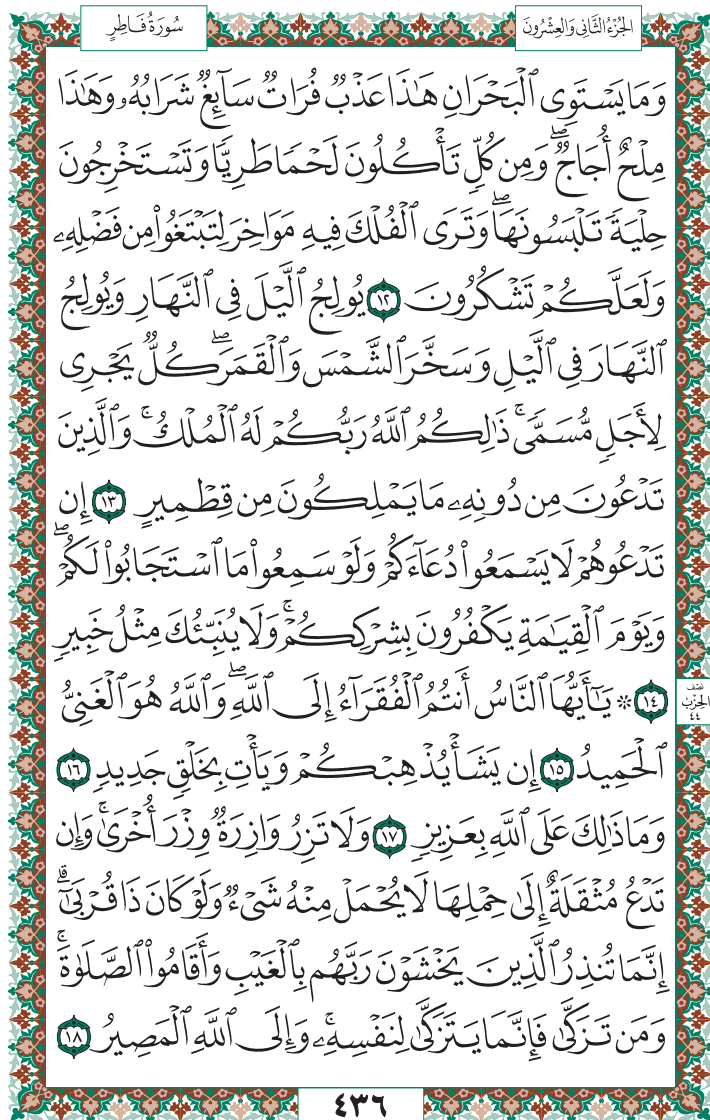 سُورَةُ فَاطِرٍ
الجُزْءُ الثَّانِي وَالعِشْرُونَ
وَمَا يَسْتَوِى ٱلْبَحْرَانِ هَٰذَا عَذْبٌ فُرَاتٌ سَآئِغٌ شَرَابُهُۥ وَهَٰذَا
مِلْحٌ أُجَاجٌ ۖ وَمِن كُلٍّ تَأْكُلُونَ لَحْمًا طَرِيًّا وَتَسْتَخْرِجُونَ
حِلْيَةً تَلْبَسُونَهَا ۖ وَتَرَى ٱلْفُلْكَ فِيهِ مَوَاخِرَ لِتَبْتَغُوا۟ مِن فَضْلِهِۦ
وَلَعَلَّكُمْ تَشْكُرُونَ ١٢ يُولِجُ ٱلَّيْلَ فِى ٱلنَّهَارِ وَيُولِجُ
ٱلنَّهَارَ فِى ٱلَّيْلِ وَسَخَّرَ ٱلشَّمْسَ وَٱلْقَمَرَ ۖ كُلٌّ يَجْرِى
لِأَجَلٍ مُّسَمًّى ۚ ذَٰلِكُمُ ٱللَّهُ رَبُّكُمْ لَهُ ٱلْمُلْكُ ۚ وَٱلَّذِينَ
تَدْعُونَ مِن دُونِهِۦ مَا يَمْلِكُونَ مِن قِطْمِيرٍ ١٣ إِن
تَدْعُوهُمْ لَا يَسْمَعُوا۟ دُعَآءَكُمْ وَلَوْ سَمِعُوا۟ مَا ٱسْتَجَابُوا۟ لَكُمْ ۖ
وَيَوْمَ ٱلْقِيَٰمَةِ يَكْفُرُونَ بِشِرْكِكُمْ ۚ وَلَا يُنَبِّئُكَ مِثْلُ خَبِيرٍ
١٤ ۞ يَٰٓأَيُّهَا ٱلنَّاسُ أَنتُمُ ٱلْفُقَرَآءُ إِلَى ٱللَّهِ ۖ وَٱللَّهُ هُوَ ٱلْغَنِىُّ
نصف الحزب ٤٤
ٱلْحَمِيدُ ١٥ إِن يَشَأْ يُذْهِبْكُمْ وَيَأْتِ بِخَلْقٍ جَدِيدٍ ١٦
وَمَا ذَٰلِكَ عَلَى ٱللَّهِ بِعَزِيزٍ ١٧ وَلَا تَزِرُ وَازِرَةٌ وِزْرَ أُخْرَىٰ ۚ وَإِن
تَدْعُ مُثْقَلَةٌ إِلَىٰ حِمْلِهَا لَا يُحْمَلْ مِنْهُ شَىْءٌ وَلَوْ كَانَ ذَا قُرْبَىٰٓ ۗ
إِنَّمَا تُنذِرُ ٱلَّذِينَ يَخْشَوْنَ رَبَّهُم بِٱلْغَيْبِ وَأَقَامُوا۟ ٱلصَّلَوٰةَ ۚ
وَمَن تَزَكَّىٰ فَإِنَّمَا يَتَزَكَّىٰ لِنَفْسِهِۦ ۚ وَإِلَى ٱللَّهِ ٱلْمَصِيرُ ١٨
٤٣٦